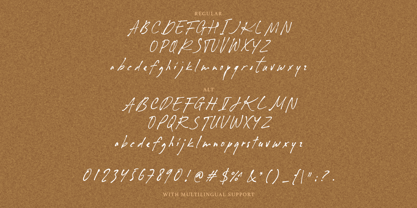 REGULAR
ABCDEFGHIJKLMN
OPQRSTUVWXYZ
abcdefghijklmnopqrstuvwxyz
ALT
ABCDEFGHIJKLMN
OPQRSTUVWXYZ
abcdefghijklmnopqrstuvwxyz
01234567890!@#$%&*()_{}":?.
WITH MULTILINGUAL SUPPORT